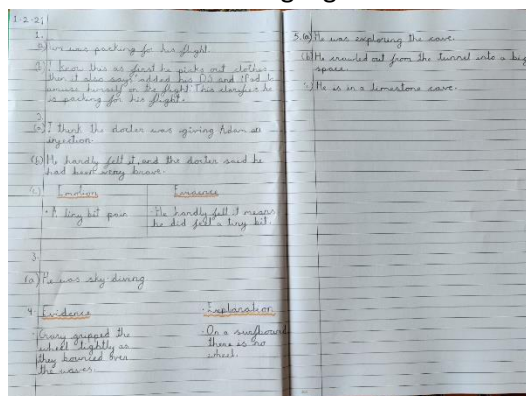 1-2-21
1.
a) was packing for his flight.
b) I know this as first he picks out clothes
then it also says added his DS and iPad to
amuse himself on the flight. This clarifies he
is packing for his flight.
2.
(a) I think the doctor was giving Adam an
injection.
(b) He hardly felt it, and the doctor said he
had been very brave.
(c) Emotion Evidence
· A tiny bit pain · He hardly felt it means
he did feel a tiny bit.
3.
(a) He was sky-diving
4. Evidence · Explanation
· Gary gripped the · On a surfboard
wheel tightly as there is no
they bounced over wheel.
the waves.
5. (a) He was exploring the cave.
(b) He crawled out from the tunnel into a big
space.
He is in a limestone cave.